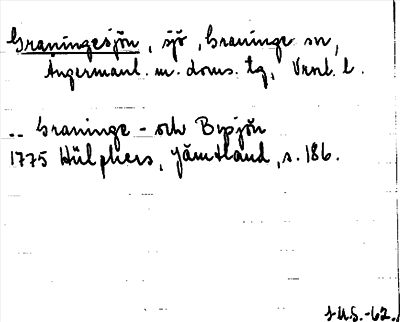 Graningesjön, sjö, Graninge sn,
Ångermanl. m. doms. tg, Vrnl. l.
-- Graninge - och Bysjön
1775 Hülphers, Jämtland, s. 186.
J.U.S.-62.